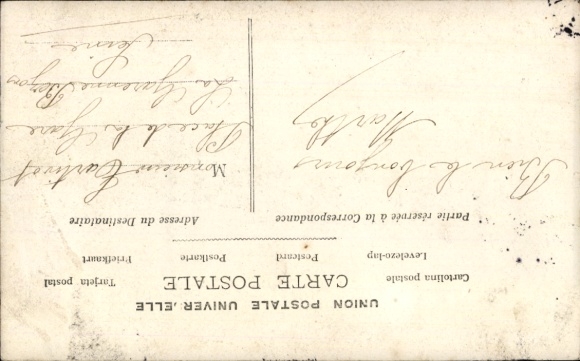 UNION POSTALE UNIVER,ELLE
CARTE POSTALE
Cartolina postale
Tarjeta postal
Levelezo-lap
Postcard
Postkarte
Briefkaart
Partie réservée à la Correspondance
Adresse du Destinataire
Bien le bonjour
Marthe
Monsieur
Place de la Gare
La Garenne
Seine